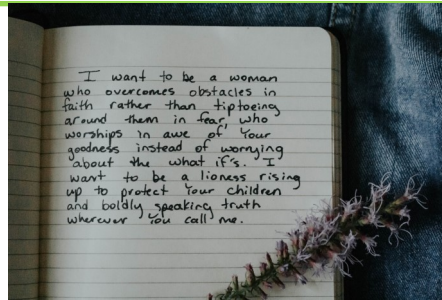 I want to be a woman
who overcomes obstacles in
faith rather than tiptoeing
around them in fear, who
worships in awe of Your
goodness instead of worrying
about the what if's. I
want to be a lioness rising
up to protect Your children
and boldly speaking truth
wherever You call me.